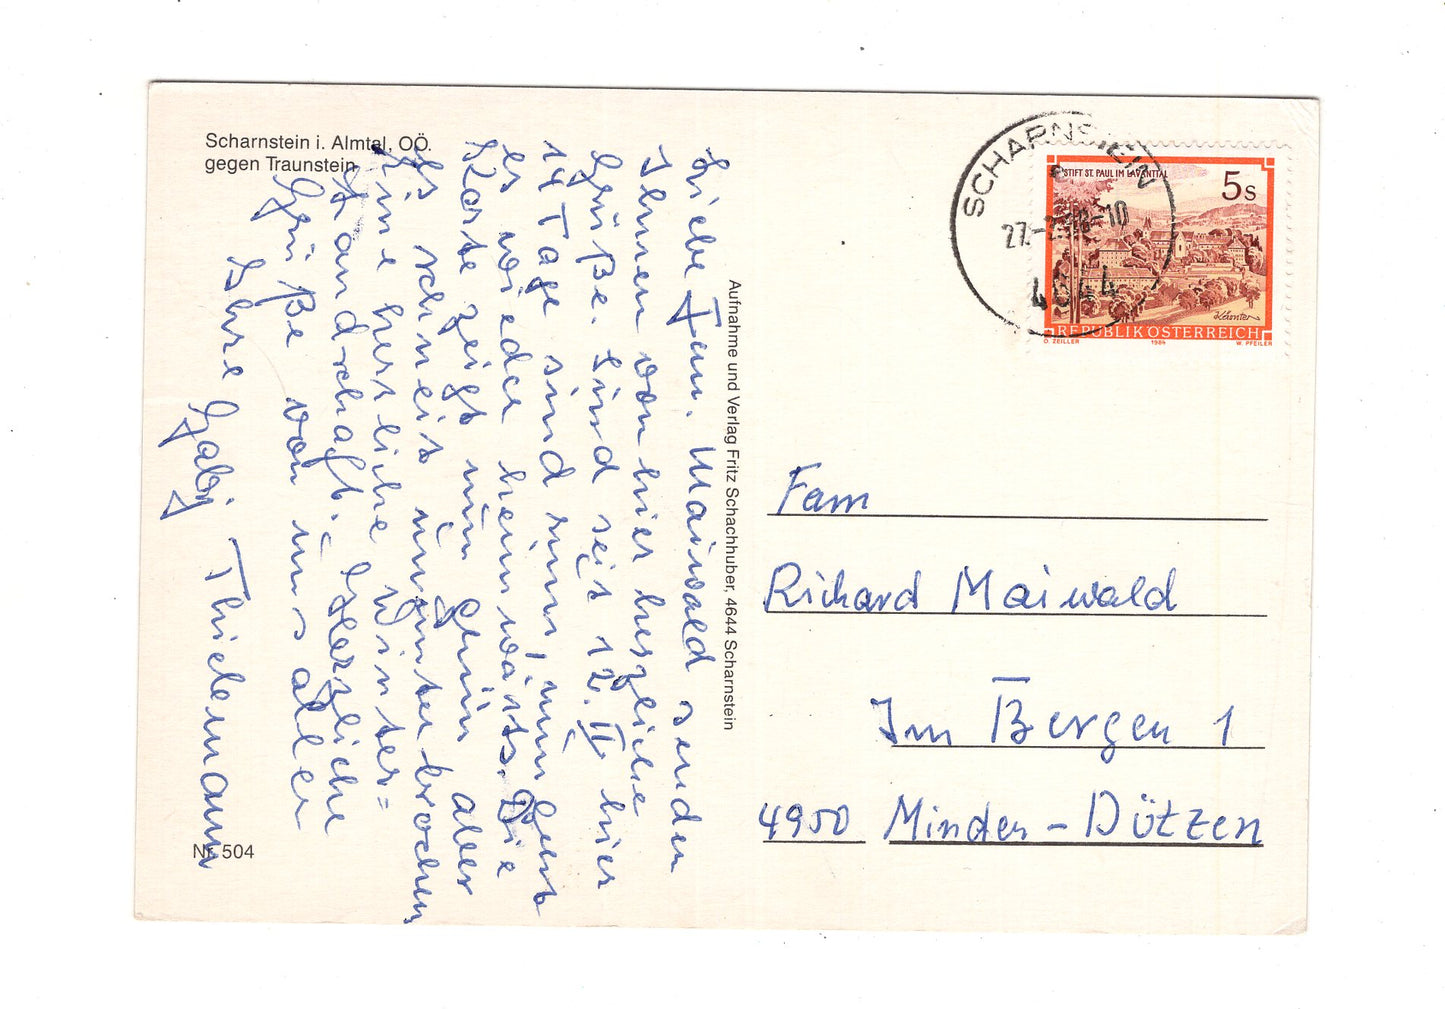 Scharnstein i. Almtal, OÖ.
gegen Traunstein
Liebe Fam. Maiwald senden
Ihnen von hier herzliche
Grüße. Sind seit 12. II hier
14 Tage sind rum, nun geht
es wieder heimwärts. Die
Karte zeigt nun grün aber
es schneit ununterbrochen
eine herrliche Winter=
landschaft. Herzliche
Grüße von uns allen
Ihre Gabi Thielemann
Nr. 504
Aufnahme und Verlag Fritz Schachhuber, 4644 Scharnstein
SCHARNSTEIN
27.-2.
-10
4644
STIFT ST. PAUL IM LAVANTTAL
5s
Kärnten
REPUBLIK ÖSTERREICH
O. ZEILLER 1984 W. PFEILER
Fam
Richard Maiwald
Im Bergen 1
4950 Minden - Dützen